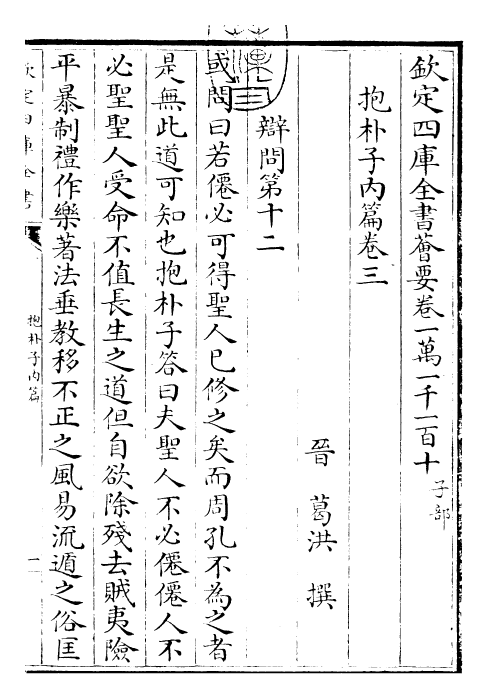 欽定四庫全書薈要卷一萬一千一百十子部
抱朴子內篇卷三
晉葛洪撰
辯問第十二
或問曰若僊必可得聖人已修之矣而周孔不為之者
是無此道可知也抱朴子答曰夫聖人不必僊僊人不
必聖聖人受命不值長生之道但自欲除殘去賊夷險
平暴制禮作樂著法垂教移不正之風易流遁之俗匡
欽定四庫全書
抱朴子內篇
一